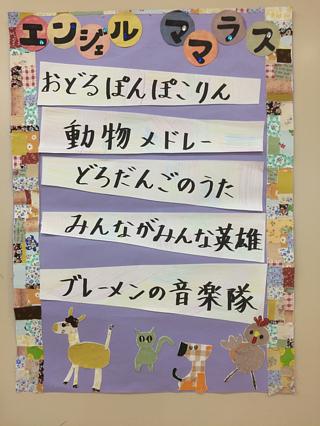 エンジェル ママラス
おどるぽんぽこりん
動物メドレー
どろだんごのうた
みんながみんな英雄
ブレーメンの音楽隊